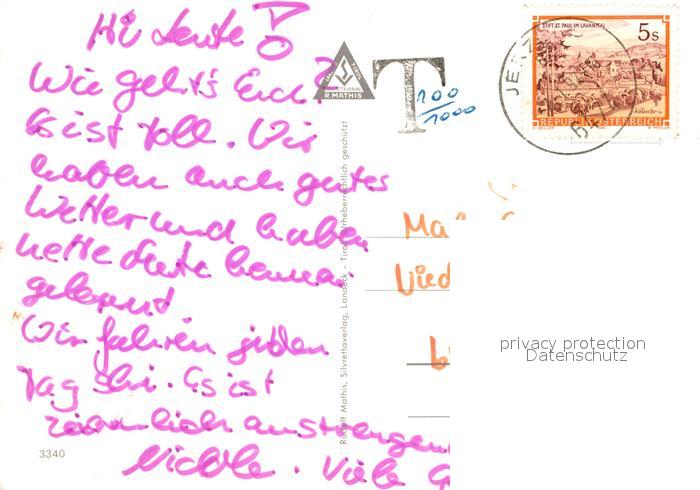 Hi Leute!
Wie geht's Euch?
Es ist toll. Wir
haben auch gutes
Wetter und haben
nette Leute kennen
gelernt
Wir fahren jeden
Tag Ski. Es ist
ziemlich anstrengend
Viele G
3340
R. MATHIS
Rudolf Mathis, Silvrettaverlag, Landeck - Tirol Urheberrechtlich geschützt
T
100/1000
JERZ
STIFT ST. PAUL IM LAVANTTAL
5 S
REPUBLIK ÖSTERREICH
Ma
Nied
b
privacy protection
Datenschutz